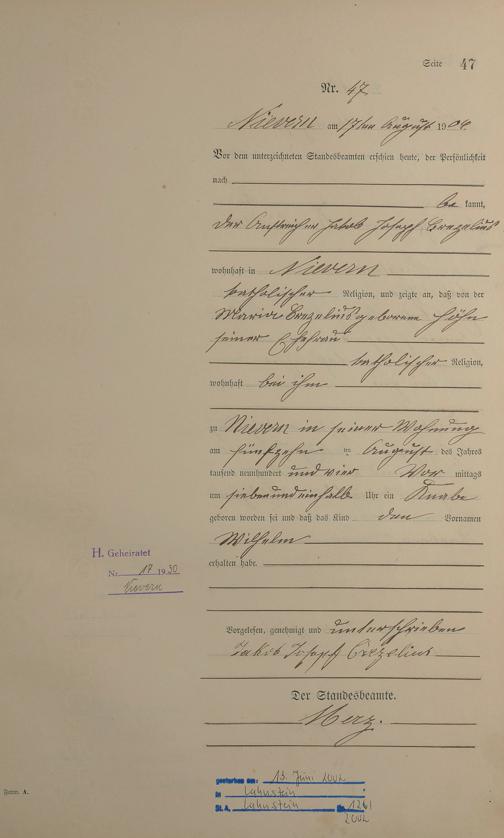 Seite 47
Nr. 47
Nievern am 17ten August 1904.
Vor dem unterzeichneten Standesbeamten erschien heute, der Persönlichkeit
nach
be kannt,
der Anstreicher Jakob Joseph Crezelius
wohnhaft in Nievern
katholischer Religion, und zeigte an, daß von der
Maria Crezelius geborenen Höhn
seiner Ehefrau
katholischer Religion,
wohnhaft bei ihm
zu Nievern in seiner Wohnung
am fünfzehn ten August des Jahres
tausend neunhundert und vier Vor mittags
um sieben und einhalb Uhr ein Knabe
geboren worden sei und daß das Kind den Vornamen
Wilhelm
erhalten habe.
H. Geheiratet
Nr. 17 1930
Nievern
Vorgelesen, genehmigt und unterschrieben
Jakob Josepf Crezelius
Der Standesbeamte.
Merz.
gestorben am: 13. Juni 2002
in Lahnstein
St. A. Lahnstein Nr. 126/
2002
Form. A.